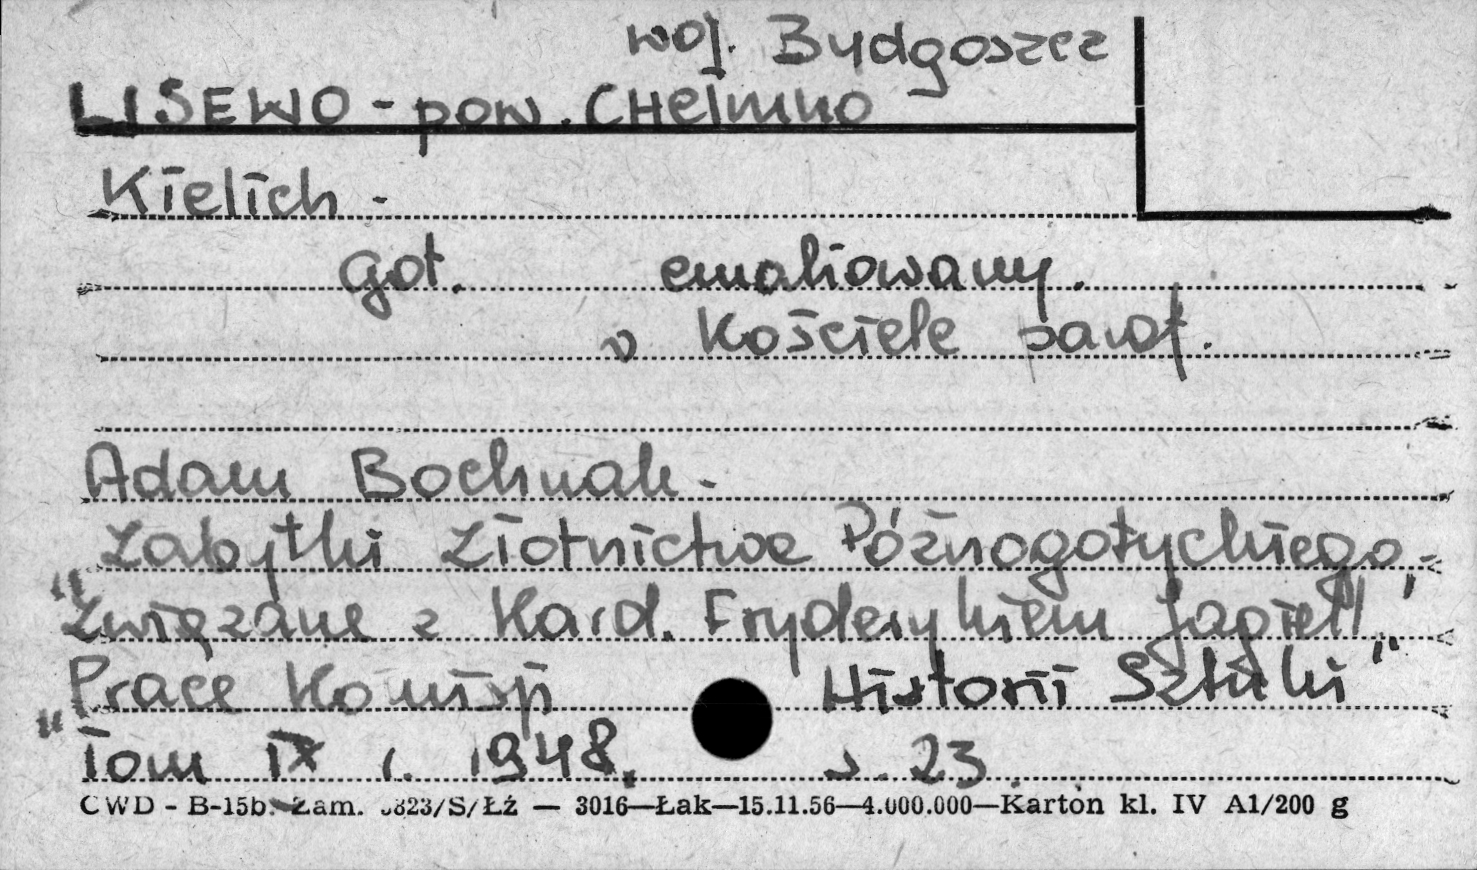 woj. Bydgoszcz
LISEWO - pow. CHełmno
Kielich -
got. emaliowany.
w Kościele paraf.
Adam Bochnak -
Zabytki Złotnictwa Późnogotyckiego -
"Związane z Kard. Fryderykiem Jagiell"
"Prace Komisji Historii Sztuki"
Tom IX r. 1948. s. 23.
CWD - B-15b. Zam. 5823/S/Łź — 3016—Łak—15.11.56—4.000.000—Karton kl. IV A1/200 g